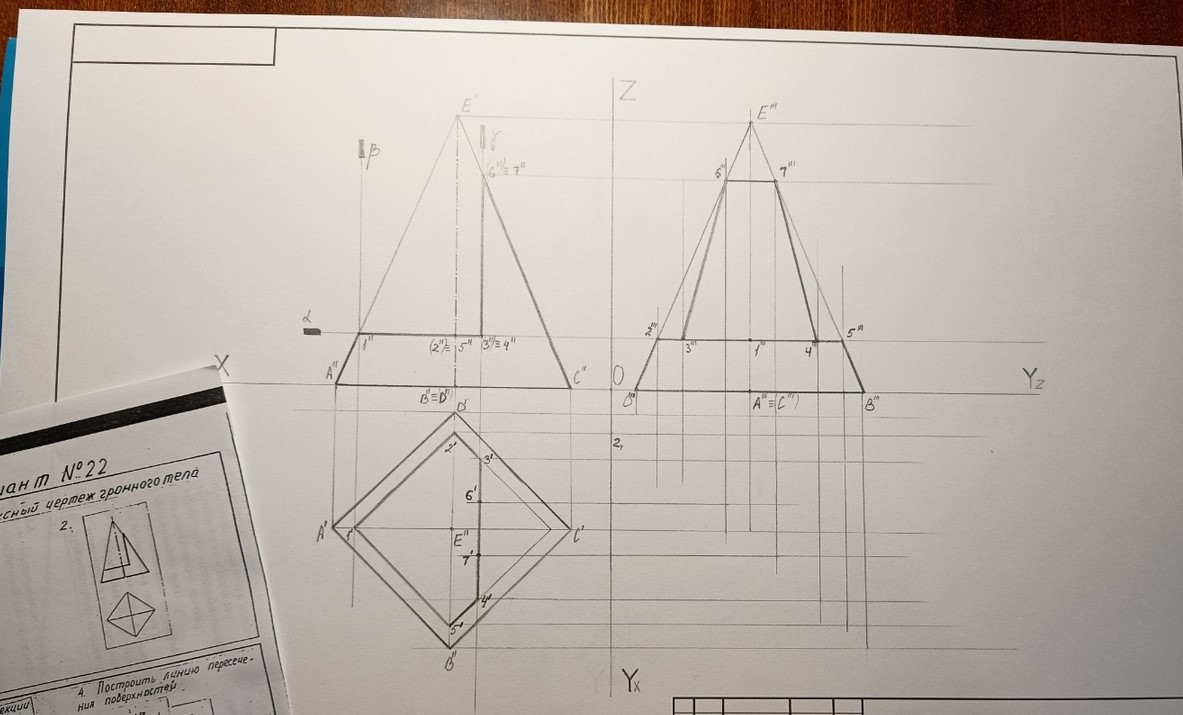 Z
E"
E'''
β
γ
(6")≡7"
6'''
7'''
α
1"
(2")≡
5"
3")≡4"
2'''
3'''
1'''
4'''
5'''
X
A"
C"
O
Yz
B"≡D")
D'''
A'''≡(C''')
B'''
D'
2'
3'
2,
6'
A'
1'
E"
C'
7'
4'
5'
B"
Yx
иант №22
ксный чертеж гранного тела
2.
4. Построить линию пересече-
ния поверхностей
екции